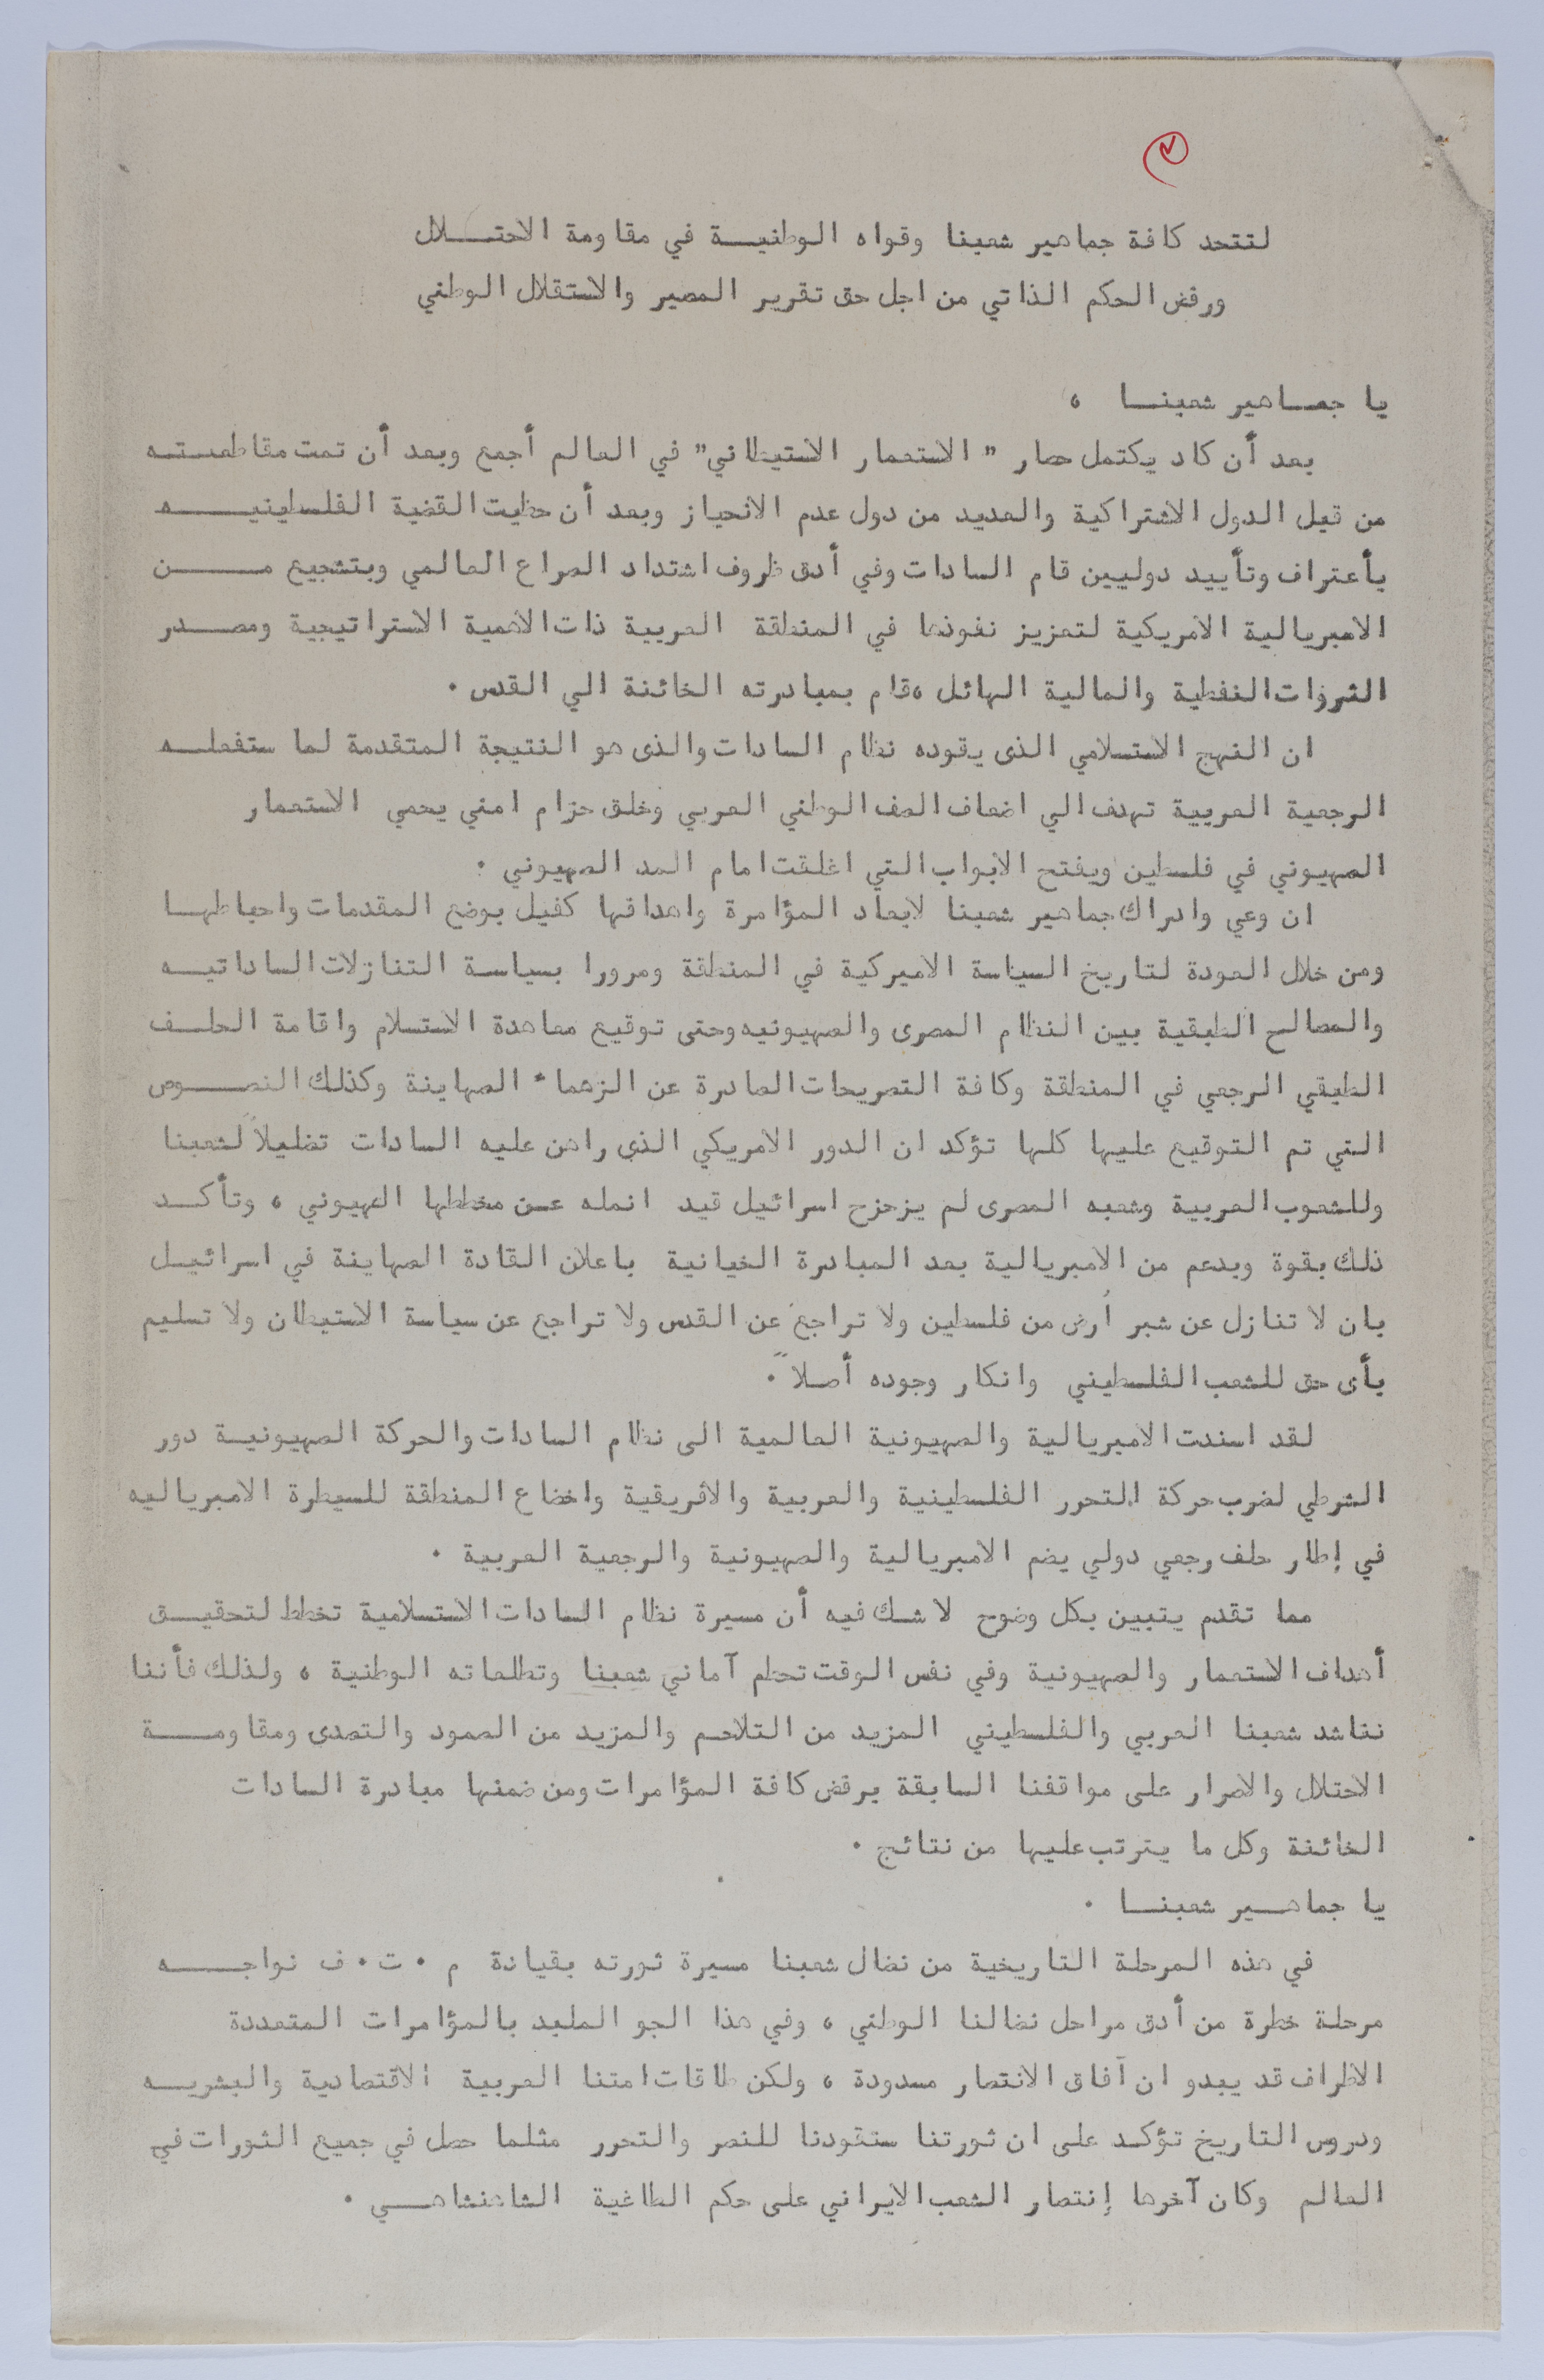 لتتحد كافة جماهير شعبنا وقواه الوطنيـة في مقاومة الاحتـلال
ورفض الحكم الذاتي من اجل حق تقرير المصير والاستقلال الوطني
يا جمـاهير شعبنـا ،
بعد أن كاد يكتمل حصار " الاستعمار الاستيطاني" في العالم أجمع وبعد أن تمت مقاطعتـه
من قبل الدول الاشتراكية والعديد من دول عدم الانحياز وبعد أن حظيت القضية الفلسطينيـه
بأعتراف وتأييد دوليين قام السادات وفي أدق ظروف اشتداد الصراع العالمي وبتشجيع مـن
الامبريالية الامريكية لتعزيز نفوذها في المنطقة العربية ذات الاهمية الاستراتيجية ومصـدر
الثروات النفطية والمالية الهائل ،قام بمبادرته الخائنة الي القدس .
ان النهج الاستسلامي الذى يقوده نظام السادات والذى هو النتيجة المتقدمة لما ستفعلـه
الرجعية العربية تهدف الي اضعاف الصف الوطني العربي وخلق حزام امني يحمي الاستعمار
الصهيوني في فلسطين ويفتح الابواب التي اغلقت امام المد الصهيوني .
ان وعي وادراك جماهير شعبنا لابعاد المؤامرة واهدافها كفيل بوضع المقدمات واحباطهـا
ومن خلال العودة لتاريخ السياسة الاميركية في المنطقة ومرورا بسياسة التنازلات الساداتيـه
والمصالح الطبقية بين النظام المصرى والصهيونيه وحتى توقيع معاهدة الاستسلام واقامة الحلـف
الطبقي الرجعي في المنطقة وكافة التصريحات الصادرة عن الزعماء الصهاينة وكذلك النصـوص
التي تم التوقيع عليها كلها تؤكد ان الدور الامريكي الذى راهن عليه السادات تضليلاً لشعبنا
وللشعوب العربية وشعبه المصرى لم يزحزح اسرائيل قيد انمله عـن مخططها الصهيوني ، وتأكـد
ذلك بقوة وبدعم من الامبريالية بعد المبادرة الخيانية باعلان القادة الصهاينة في اسرائيـل
بان لا تنازل عن شبر أرض من فلسطين ولا تراجع عن القدس ولا تراجع عن سياسة الاستيطان ولا تسليم
بأى حق للشعب الفلسطيني وانكار وجوده أصلاً .
لقد اسندت الامبريالية والصهيونية العالمية الى نظام السادات والحركة الصهيونيـة دور
الشرطي لضرب حركة التحرر الفلسطينية والعربية والافريقية واخضاع المنطقة للسيطرة الامبرياليه
في إطار حلف رجعي دولي يضم الامبريالية والصهيونية والرجعية العربية .
مما تقدم يتبين بكل وضوح لا شك فيه أن مسيرة نظام السادات الاستسلامية تخطط لتحقيـق
أهداف الاستعمار والصهيونية وفي نفس الوقت تحطم آماني شعبنا وتطلعاته الوطنية ، ولذلك فأننا
نناشد شعبنا العربي والفلسطيني المزيد من التلاحم والمزيد من الصمود والتصدى ومقاومـة
الاحتلال والاصرار على مواقفنا السابقة برفض كافة المؤامرات ومن ضمنها مبادرة السادات
الخائنة وكل ما يترتب عليها من نتائج .
يا جماهـير شعبنـا .
في هذه المرحلة التاريخية من نضال شعبنا مسيرة ثورته بقيادة م . ت . ف نواجـه
مرحلة خطرة من أدق مراحل نضالنا الوطني ، وفي هذا الجو الملبد بالمؤامرات المتعددة
الاطراف قد يبدو ان آفاق الانتصار مسدودة ، ولكن طاقات امتنا العربية الاقتصادية والبشريـه
ودروس التاريخ تؤكد على ان ثورتنا ستقودنا للنصر والتحرر مثلما حصل في جميع الثورات في
العالم وكان آخرها إنتصار الشعب الايراني على حكم الطاغية الشاهنشاهـي .